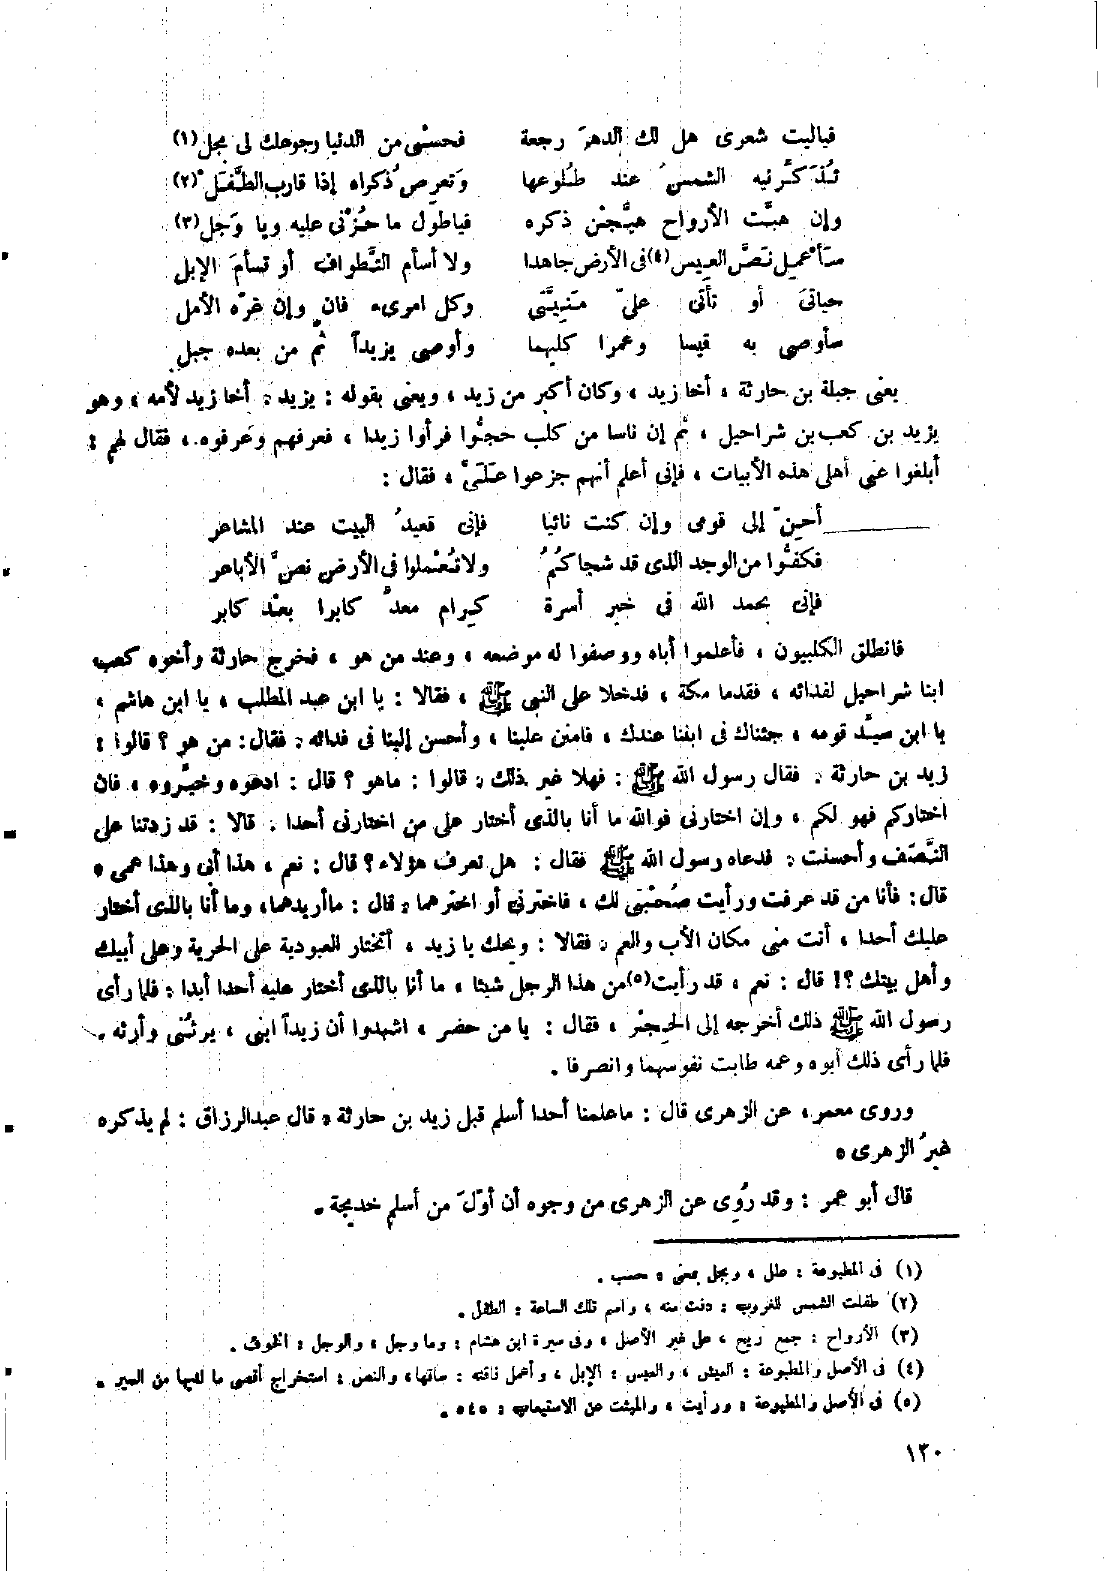 فياليت شعرى هل لك الدهرَ رجعة فحسْبى من الدنيا رجوعك لى بجل(١)
تُذَكِّرنيه الشمسُ عند طُلوعها وَتعرِض ُذكراه إذا قارب الطَّفَل ْ(٢)
وإن هبَّت الأرواح هيَّجْن ذكره فياطول ما حُزْنى عليه ويا وَجل(٣)
سَأُعْمِل نَصَّ العِيس(٤)فى الأرض جاهدا ولا أسأم التَّطواف أو تسأمَ الإبل
حياتىَ أو تأتى علىّ مَنِيَّتى وكل امرىء فان ٍ وإن غرّه الأمل
سأوصى به قيسا وعمرا كليهما وأوصى يزيداً ثمّ من بعده جبل
يعنى جبلة بن حارثة ، أخا زيد ، وكان أكبر من زيد ، ويعنى بقوله : يزيد ، أخا زيد لأمه ، وهو
يزيد بن كعب بن شراحيل ، ثم إن ناسا من كلب حجُّوا فرأوا زيدا ، فعرفهم وَعرفوه ، فقال لهم :
أبلغوا عنى أهلى هذه الأبيات ، فإنى أعلم أنهم جزعوا عَلَىَّ ، فقال :
أحِنّ إلى قومى وإن كنت نائيا فإنى قعيدُ البيت عند المشاعر
فكفُّوا من الوجد الذى قد شجاكُمُ ولا تُعْملوا فى الأرض نصَّ الأباعر
فإنى بحمد الله فى خير أسرة كِرام معدٍّ كابرا بعْد كابر
فانطلق الكلبيون ، فأعلموا أباه ووصفوا له موضعه ، وعند من هو ، فخرج حارثة وأخوه كعب
ابنا شراحيل لفدائه ، فقدما مكة ، فدخلا على النبى ﷺ ، فقالا : يا ابن عبد المطلب ، يا ابن هاشم ،
يا ابن سيِّد قومه ، جئناك فى ابننا عندك ، فامنن علينا ، وأحسن إلينا فى فدائه . فقال: من هو ؟ قالوا :
زيد بن حارثة . فقال رسول الله ﷺ : فهلا غير ذلك . قالوا : ماهو ؟ قال : ادعوه وخيِّروه ، فان
اختاركم فهو لكم ، وإن اختارنى فوالله ما أنا بالذى أختار على من اختارنى أحدا . قالا : قد زدتنا على
النَّصَف وأحسنت . فدعاه رسول الله ﷺ فقال : هل تعرف هؤلاء ؟ قال : نعم ، هذا أبى وهذا عمى .
قال: فأنا من قد عرفت ورأيت صُحْبَتى لك ، فاخترنى أو اخترهما . قال : ماأريدهما، وما أنا بالذى أختار
عليك أحدا ، أنت منى مكان الأب والعم . فقالا : ويحك يا زيد ، أتختار العبودية على الحرية وعلى أبيك
وأهل بيتك ؟! قال : نعم ، قد رأيت(٥)من هذا الرجل شيئا ، ما أنا بالذى أختار عليه أحدا أبدا . فلما رأى
رسول الله ﷺ ذلك أخرجه إلى الحِجْر ، فقال : يا من حضر ، اشهدوا أن زيداً ابنى ، يرثُنى وأرثه .
فلما رأى ذلك أبوه وعمه طابت نفوسهما وانصرفا .
وروى معمر، عن الزهرى قال : ماعلمنا أحدا أسلم قبل زيد بن حارثة . قال عبدالرزاق : لم يذكره
غيرُ الزهرى .
قال أبو عمر : وقد رُوِى عن الزهرى من وجوه أن أوّلَ من أسلم خديجة .
(١) فى المطبوعة : علل ، وبجل بمعنى . حسب .
(٢) طفلت الشمس للغروب : دنت منه ، واسم تلك الساعة : الطفل .
(٣) الأرواح : جمع ريح ، على غير الأصل ، وفى سيرة ابن هشام : وما وجل ، والوجل : الخوف .
(٤) فى الأصل والمطبوعة : العيش ، والعيس : الإبل ، وأعمل ناقته : ساقها، والنص : استخراج أقصى ما لديها من السير .
(٥) فى الأصل والمطبوعة : ورأيت ، والمثبت عن الاستيعاب : ٥٤٥ .
١٣٠